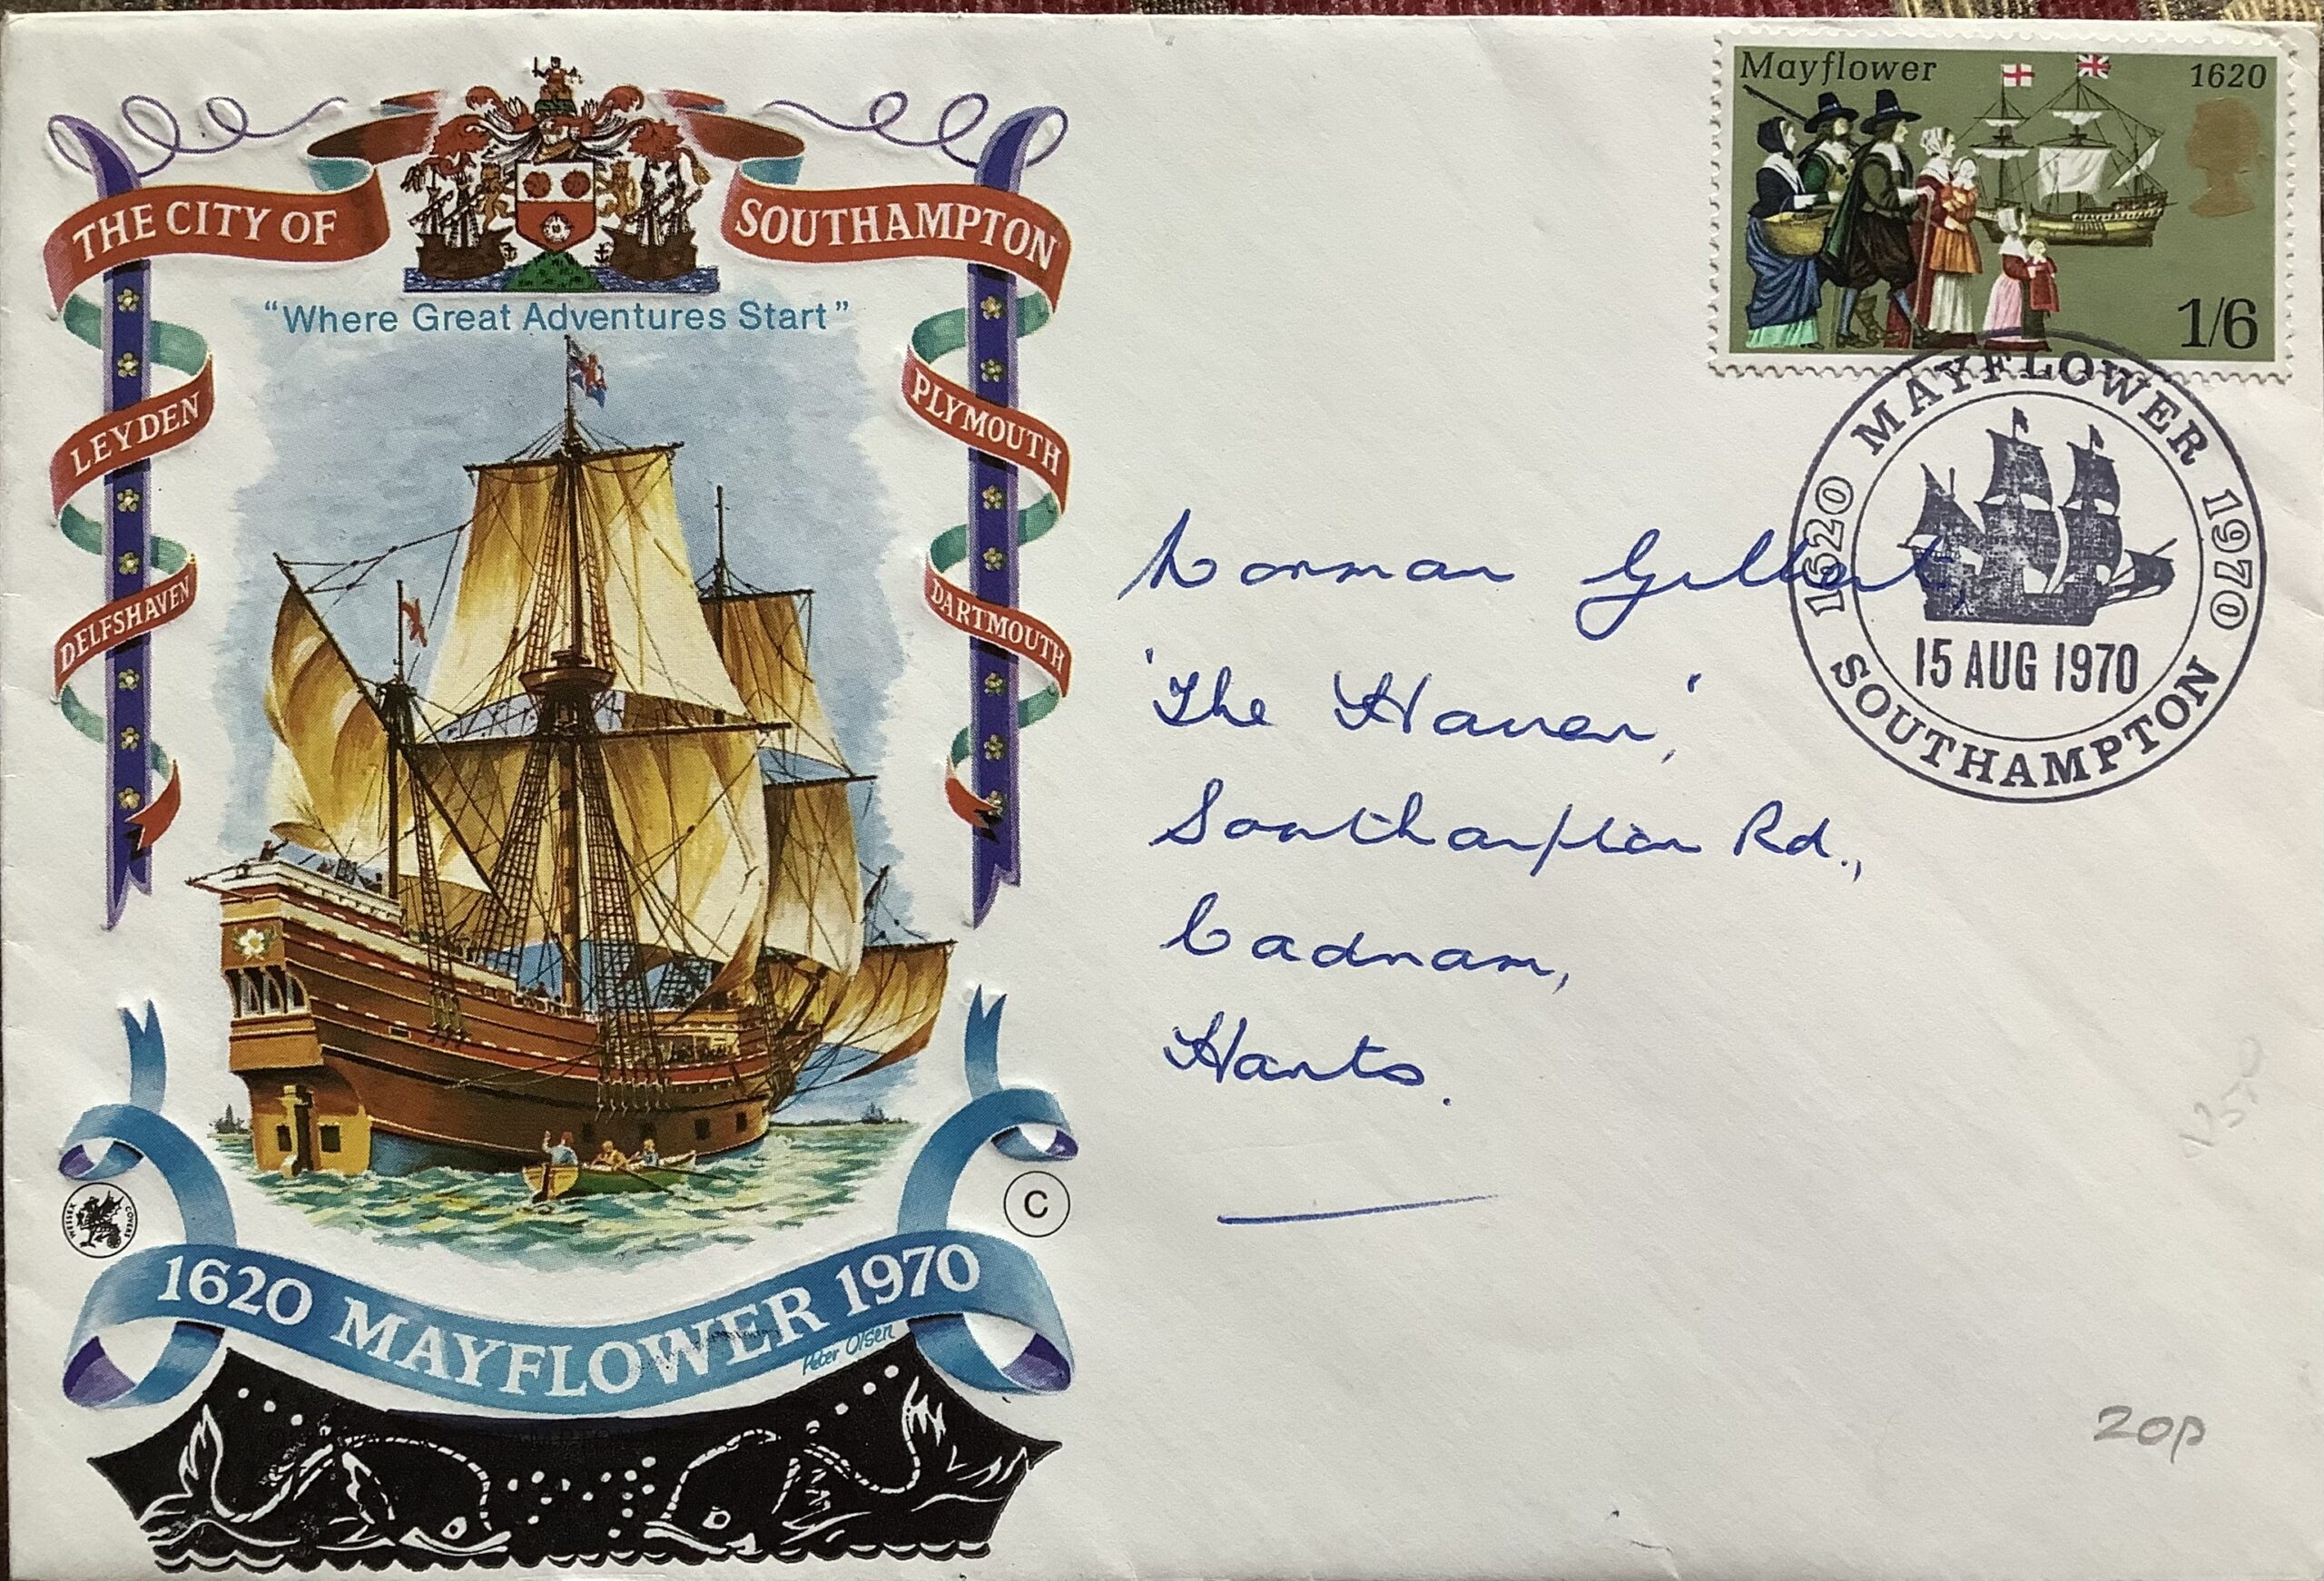 THE CITY OF SOUTHAMPTON
"Where Great Adventures Start"
LEYDEN
DELFSHAVEN
PLYMOUTH
DARTMOUTH
WESSEX COVERS
C
1620 MAYFLOWER 1970
Peter Olsen
Mayflower 1620
1/6
MAYFLOWER
1620 1970
15 AUG 1970
SOUTHAMPTON
Norman Gilbert,
'The Haven',
Southampton Rd.,
Cadnam,
Hants.
20p